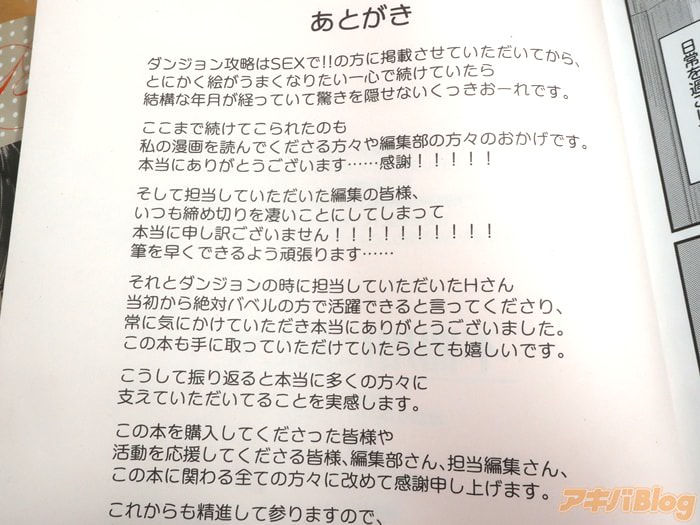 あとがき
ダンジョン攻略はSEXで!!の方に掲載させていただいてから、
とにかく絵がうまくなりたい一心で続けていたら
結構な年月が経っていて驚きを隠せないくっきおーれです。
ここまで続けてこられたのも
私の漫画を読んでくださる方々や編集部の方々のおかげです。
本当にありがとうございます……感謝！！！！！
そして担当していただいた編集の皆様、
いつも締め切りを凄いことにしてしまって
本当に申し訳ございません！！！！！！！！！！
筆を早くできるよう頑張ります……
それとダンジョンの時に担当していただいたHさん
当初から絶対バベルの方で活躍できると言ってくださり、
常に気にかけていただき本当にありがとうございました。
この本も手に取っていただけていたらとても嬉しいです。
こうして振り返ると本当に多くの方々に
支えていただいてることを実感します。
この本を購入してくださった皆様や
活動を応援してくださる皆様、編集部さん、担当編集さん、
この本に関わる全ての方々に改めて感謝申し上げます。
これからも精進して参りますので、
日常を過ご
アキバBlog